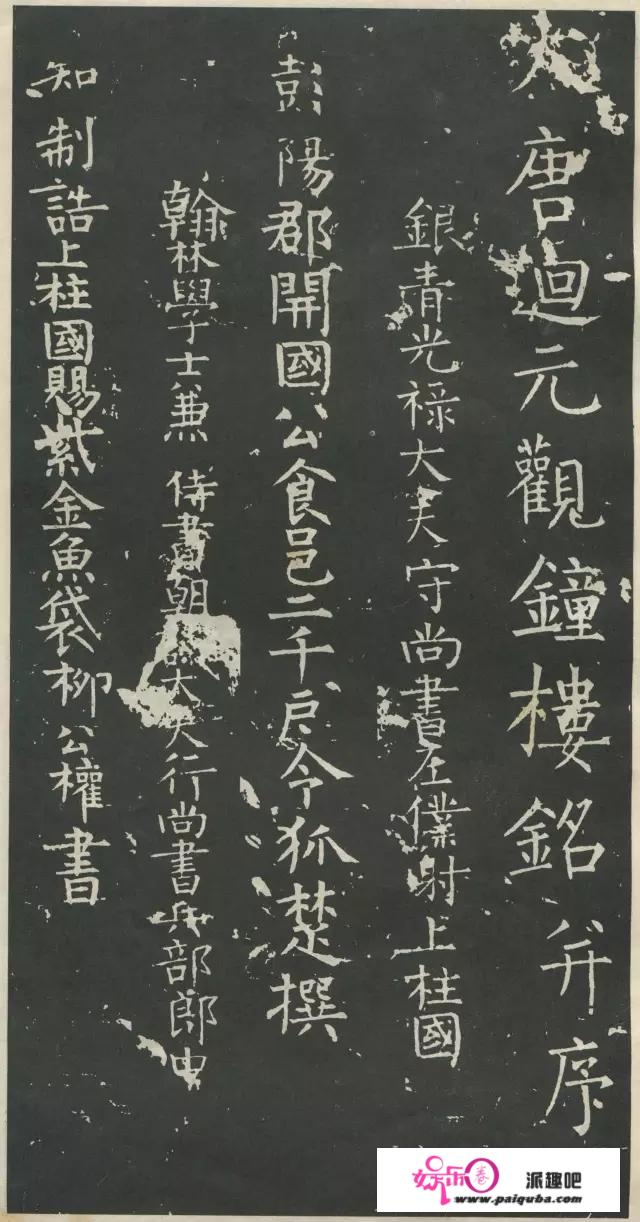 大唐迴元觀鐘樓銘并序
銀青光禄大夫守尚書左僕射上柱國
彭陽郡開國公食邑二千戶令狐楚撰
翰林學士兼侍書朝議大夫行尚書兵部郎中
知制誥上柱國賜紫金魚袋柳公權書
娱乐卷 派趣吧
www.paiquba.com